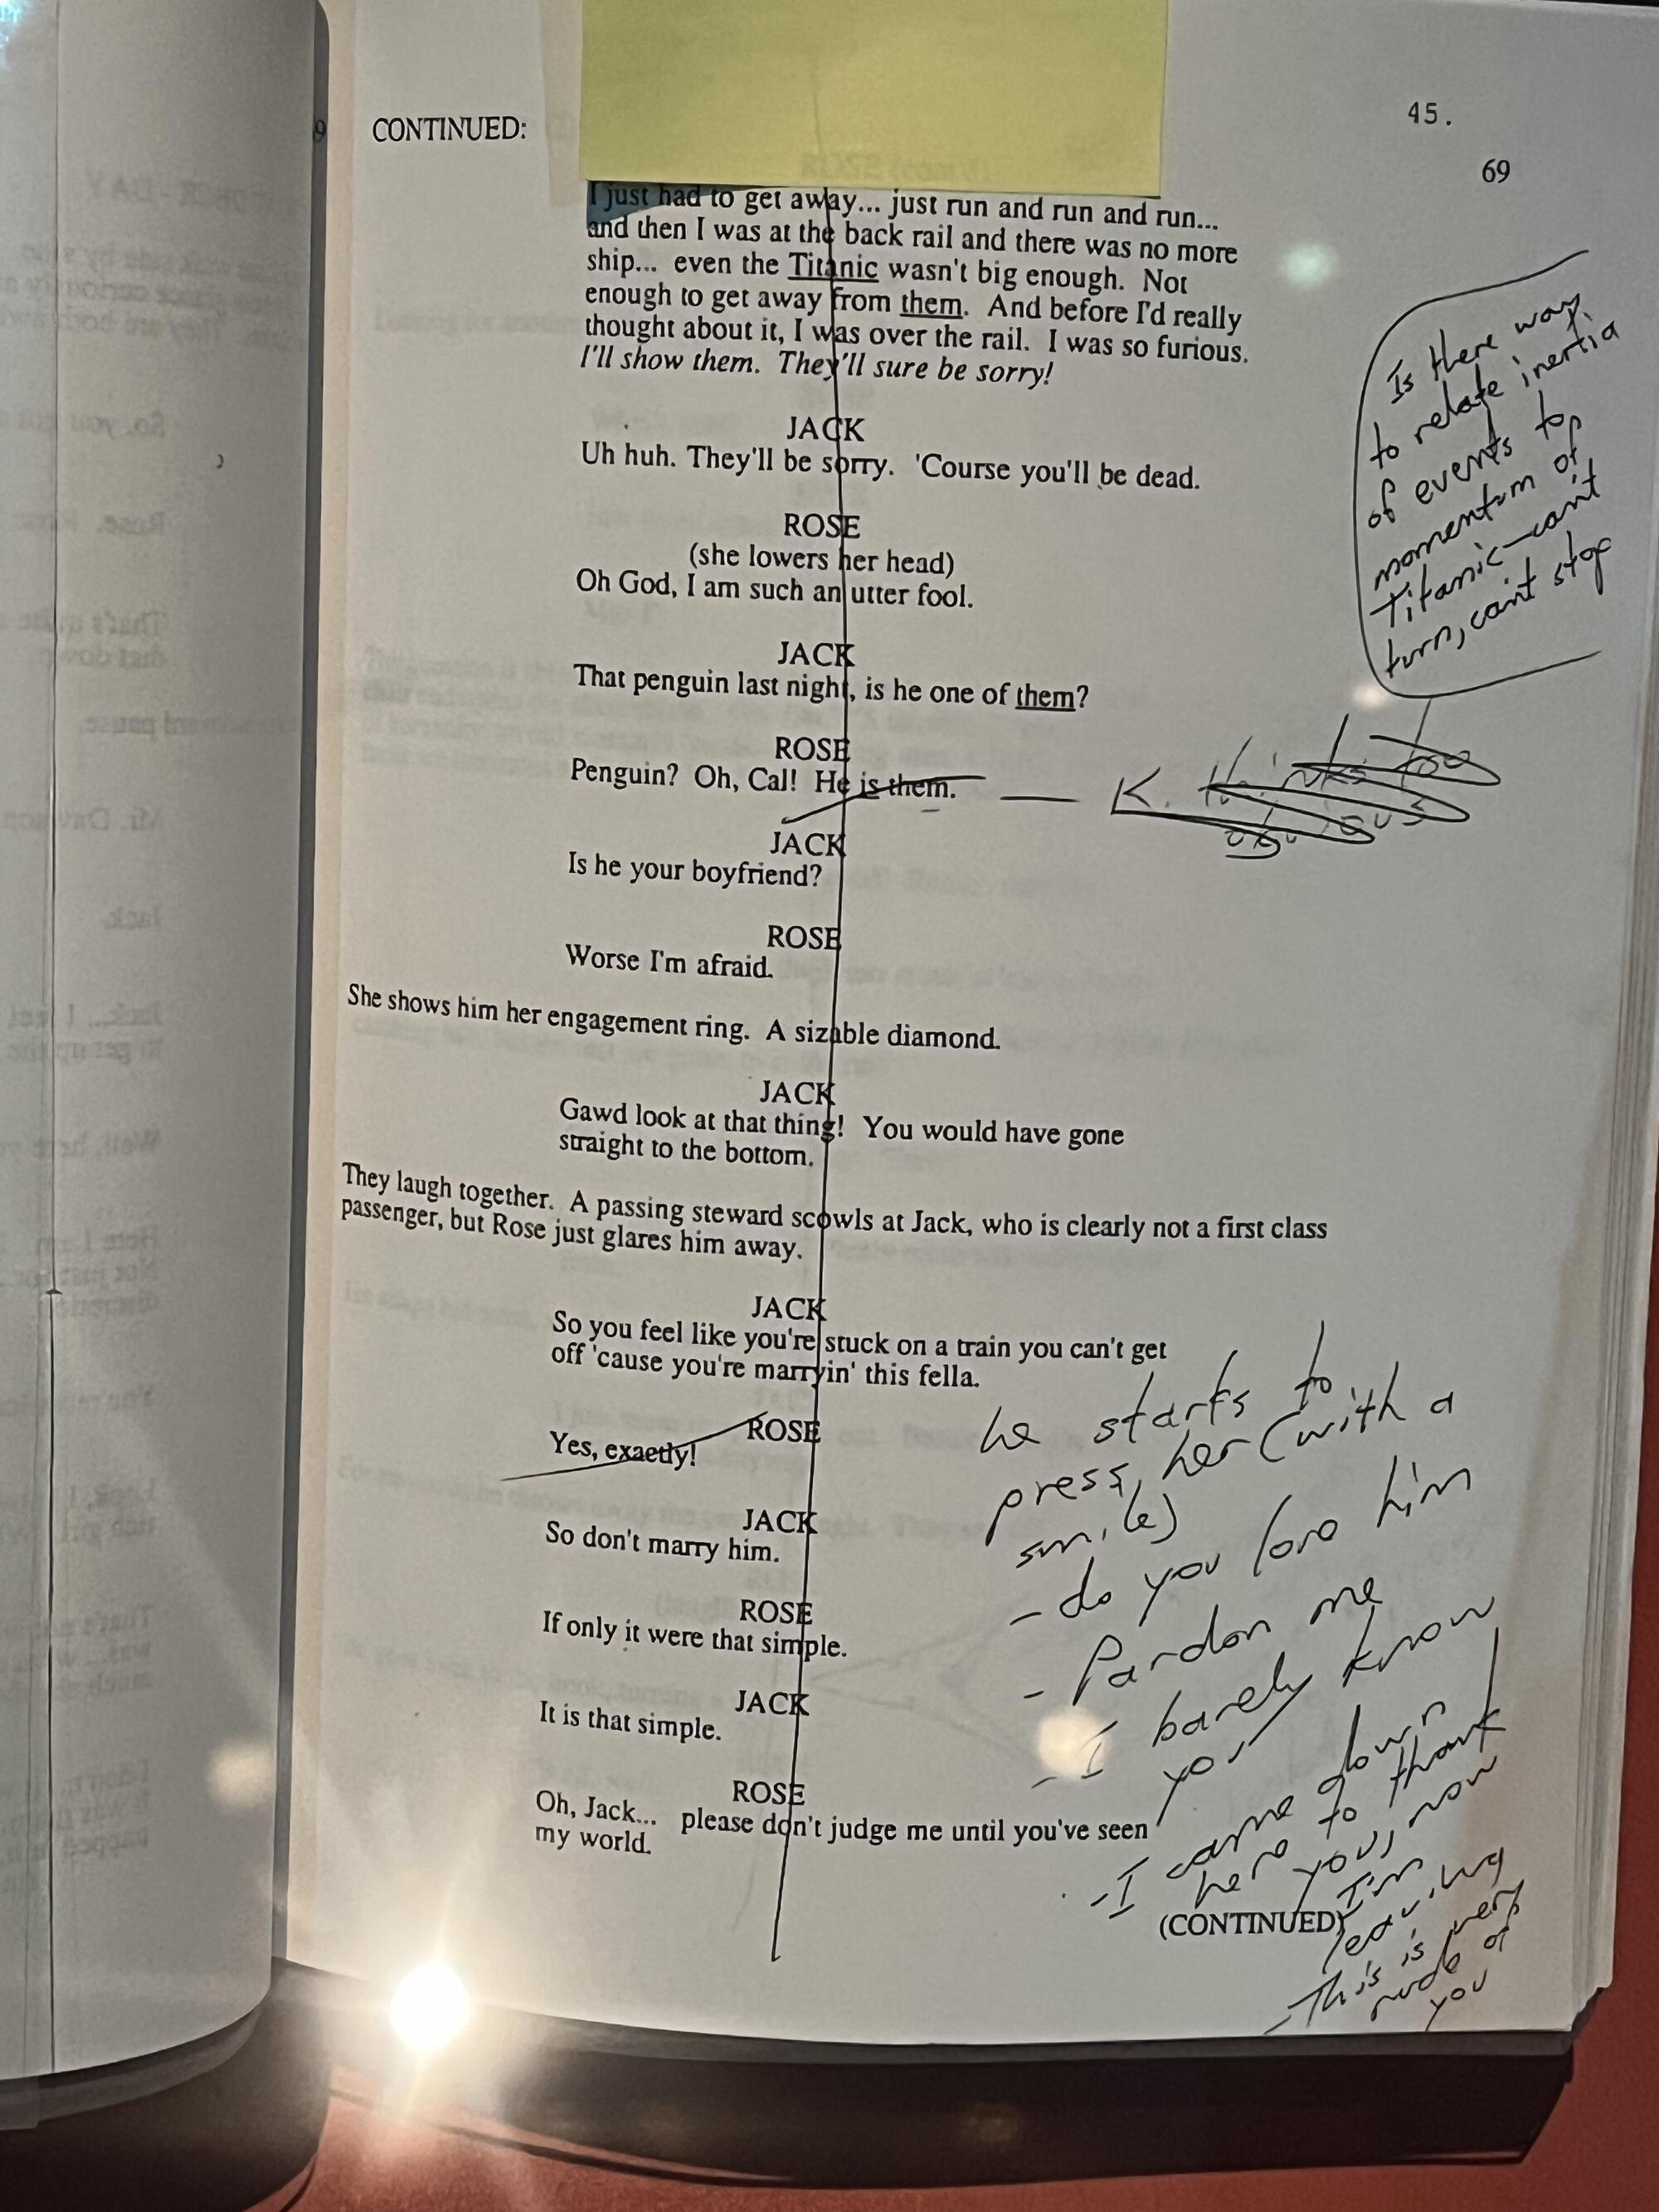 CONTINUED:
45.
69
I just had to get away... just run and run and run...
and then I was at the back rail and there was no more
ship... even the Titanic wasn't big enough. Not
enough to get away from them. And before I'd really
thought about it, I was over the rail. I was so furious.
I'll show them. They'll sure be sorry!
Is there way
to relate inertia
of events to
momentum of
Titanic—can't
turn, can't stop
JACK
Uh huh. They'll be sorry. 'Course you'll be dead.
ROSE
(she lowers her head)
Oh God, I am such an utter fool.
JACK
That penguin last night, is he one of them?
ROSE
Penguin? Oh, Cal! He is them.
— K. thinks too
obvious
JACK
Is he your boyfriend?
ROSE
Worse I'm afraid.
She shows him her engagement ring. A sizable diamond.
JACK
Gawd look at that thing! You would have gone
straight to the bottom.
They laugh together. A passing steward scowls at Jack, who is clearly not a first class
passenger, but Rose just glares him away.
JACK
So you feel like you're stuck on a train you can't get
off 'cause you're marryin' this fella.
ROSE
Yes, exactly!
JACK
So don't marry him.
ROSE
If only it were that simple.
JACK
It is that simple.
ROSE
Oh, Jack... please don't judge me until you've seen
my world.
he starts to
press her (with a
smile)
- do you love him
- Pardon me
- I barely know
you
- I came down
here to thank
you, now
I'm
leaving
- This is very
rude of
you
(CONTINUED)